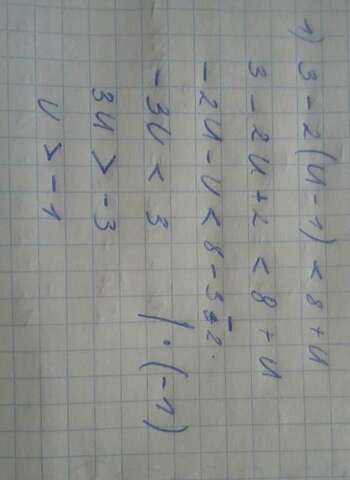 1) 3 - 2(u - 1) < 8 + u
3 - 2u + 2 < 8 + u
- 2u - u < 8 - 3 - 2
- 3u < 3 | · (-1)
3u > -3
u > -1